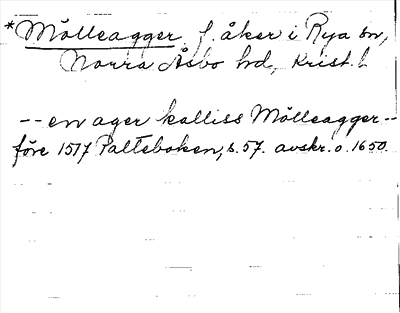 *Mölleagger, f. åker i Rya sn,
Norra Åsbo hd, Krist. l
-- en ager kalliss Mölleagger --
före 1517 Palteboken, s. 57. avskr. o. 1650.